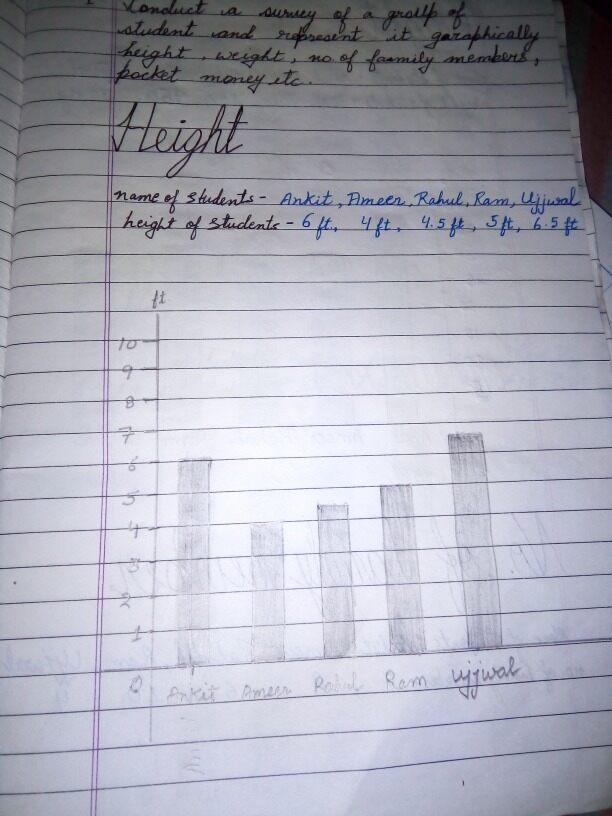 Conduct a survey of a group of
student and represent it garaphically
height, weight, no. of faamily members,
pocket money etc.
Height
name of students - Ankit, Ameer, Rahul, Ram, Ujjwal
height of students - 6 ft, 4 ft, 4.5 ft, 5 ft, 6.5 ft
ft
10
9
8
7
6
5
4
3
2
1
0
Ankit Ameer Rahul Ram Ujjwal